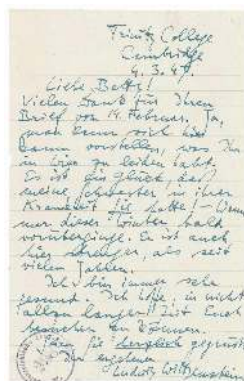 Trinity College
Cambridge
4.3.47.
Liebe Betty!
Vielen Dank für Ihren
Brief vom 14. Februar. Ja,
man kann sich hier
kaum vorstellen, was Ihr
in Wien zu leiden habt.
Es ist ein Glück, daß
meine Schwester in ihrer
Krankheit Sie hatte! – Wenn
nur dieser Winter bald
vorüberginge. Er ist auch
hier strenger, als seit
vielen Jahren.
Ich bin immer sehr
gesund. Ich hoffe, in nicht
allzu langer Zeit Euch
besuchen zu können.
Seien Sie herzlich gegrüßt
Ihr ergebener
Ludwig Wittgenstein